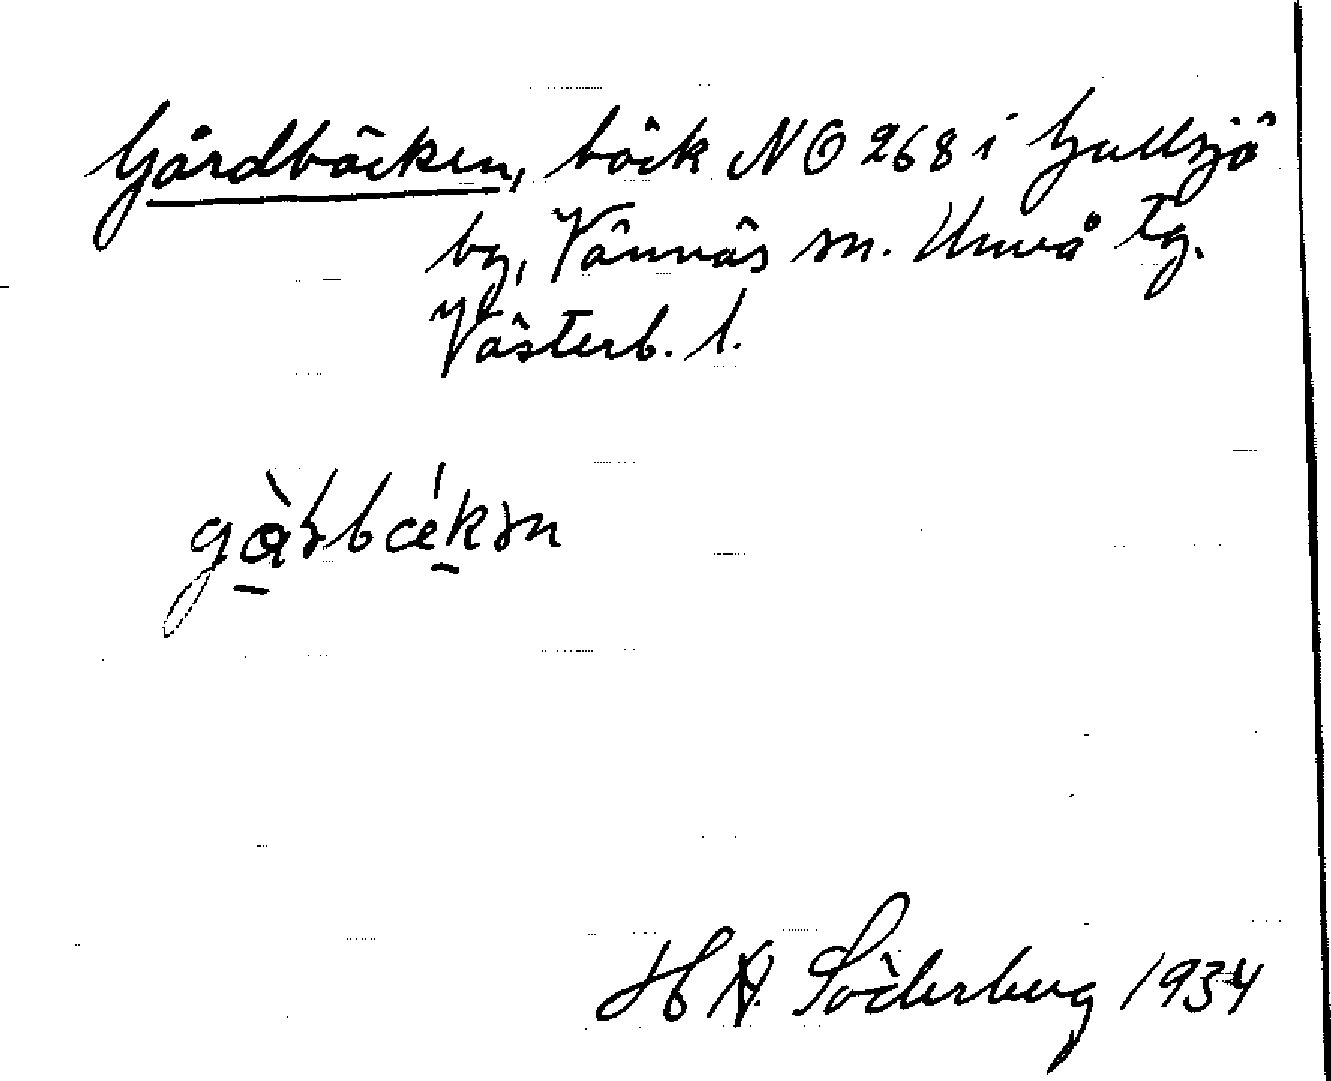 Gårdbäcken, bäck NO 268 i Gullsjö
by, Vännäs sn. Umeå tg.
Västerb. l.
H A. Söderberg 1934